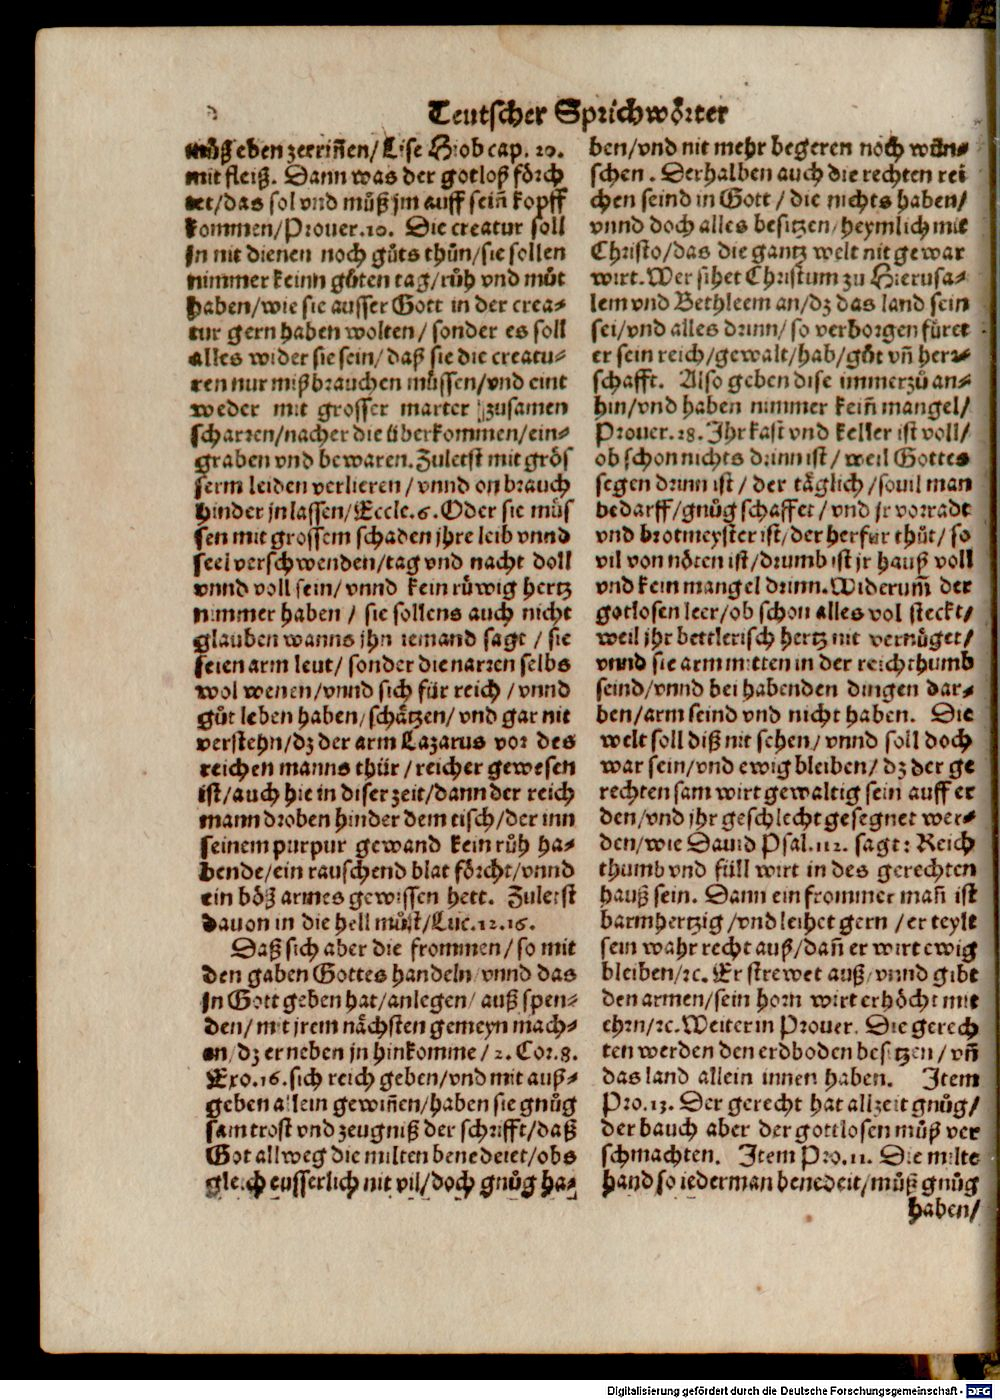 Teutscher Sprichwoͤrter
muͦß eben zerriñen/Lise Hiob cap. 20.
mit fleiß. Dann was der gotloß foͤrch
tet/das sol vnd muͦß jm auff sein̄ kopff
kommen/Prouer.10. Die creatur soll
jn nit dienen noch guͦts thuͦn/sie sollen
nimmer keinn guͦten tag/ruͦh vnd muͦt
haben/wie sie ausser Gott in der crea-
tur gern haben wolten/ sonder es soll
alles wider sie sein/daß sie die creatu-
ren nur mißbrauchen muͤssen/vnd eint
weder mit grosser marter zusamen
scharren/nacher die überkommen/ein-
graben vnd bewaren. Zuletst mit groͤs
serm leiden verlieren/vnnd on brauch
hinder jn lassen/Eccle.6. Oder sie muͤs
sen mit grossem schaden jhre leib vnnd
seel verschwenden/tag vnd nacht doll
vnnd voll sein/vnnd kein ruͤwig hertz
nimmer haben / sie sollens auch nicht
glauben wanns jhn iemand sagt / sie
seien arm leut/ sonder die narren selbs
wol wenen/vnnd sich für reich / vnnd
guͦt leben haben/schaͤtzen/ vnd gar nit
verstehn/dz der arm Lazarus vor des
reichen manns thür/reicher gewesen
ist/auch hie in diser zeit/dann der reich
mann droben hinder dem tisch/der inn
seinem purpur gewand kein ruͦh ha-
bende/ein rauschend blat foͤrcht/vnnd
ein boͤß armes gewissen hett. Zuletst
dauon in die hell muͦst/Luc.12.16.
Daß sich aber die frommen/so mit
den gaben Gottes handeln/vnnd das
jn Gott geben hat/anlegen/ auß spen-
den/mit jrem naͤchsten gemeyn mach-
en/dz er neben jn hinkomme/2. Cor.8.
Exo.16. sich reich geben/vnd mit auß-
geben allein gewiñen/haben sie gnuͦg
sam trost vnd zeugniß der schrifft/daß
Got allweg die milten benedeiet/obs
gleich eusserlich nit vil/doch gnuͦg ha-
ben/vnd nit mehr begeren noch wün-
schen. Derhalben auch die rechten rei
chen seind in Gott / die nichts haben/
vnnd doch alles besitzen/heymlich mit
Christo/das die gantz welt nit gewar
wirt. Wer sihet Christum zu Hierusa-
lem vnd Bethleem an/dz das land sein
sei/vnd alles drinn/so verborgen füret
er sein reich/gewalt/hab/guͦt vñ herr-
schafft. Also geben dise immerzuͦ an-
hin/vnd haben nimmer keiñ mangel/
Prouer.28. Ihr kast vnd keller ist voll/
ob schon nichts drinn ist/ weil Gottes
segen drinn ist/ der taͤglich/souil man
bedarff/gnuͦg schaffet/vnd jr vorradt
vnd brotmeyster ist/der herfür thuͦt/ so
vil von noͤten ist/drumb ist jr hauß voll
vnd kein mangel drinn. Widerum̃ der
gotlosen leer/ob schon alles vol steckt/
weil jhr bettlerisch hertz nit vernuͤget/
vnnd sie arm mitten in der reichthumb
seind/vnnd bei habenden dingen dar-
ben/arm seind vnd nicht haben. Die
welt soll diß nit sehen/ vnnd soll doch
war sein/vnd ewig bleiben/ dz der ge
rechten sam wirt gewaltig sein auff er
den/vnd jhr geschlecht gesegnet wer-
den/wie Dauid Psal.112. sagt: Reich
thumb vnd füll wirt in des gerechten
hauß sein. Dann ein frommer mañ ist
barmhertzig/vnd leihet gern / er teylt
sein wahr recht auß/dañ er wirt ewig
bleiben/ꝛc. Er strewet auß/vnnd gibt
den armen/sein horn wirt erhoͤcht mit
ehrn/ꝛc. Weiter in Prouer. Die gerech
ten werden den erdboden besitzen/vñ
das land allein innen haben. Item
Pro.13. Der gerecht hat allzeit gnuͦg/
der bauch aber der gottlosen muͦß ver
schmachten. Item Pro.11. Die milte
hand so iederman benedeit/muͦß gnuͦg
haben/
Digitalisierung gefördert durch die Deutsche Forschungsgemeinschaft - DFG